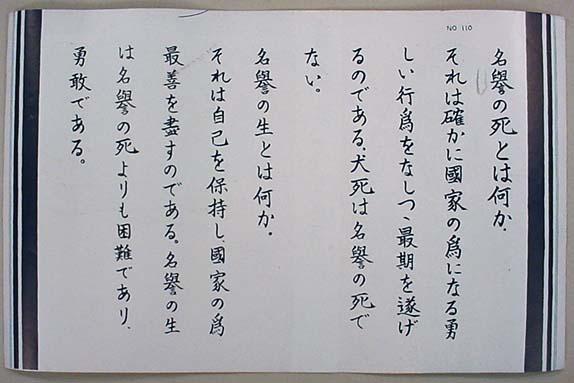 NO 110
名譽の死とは何か。
それは確かに國家の爲になる勇
しい行爲をなしつゝ最期を遂げ
るのである。犬死は名譽の死で
ない。
名譽の生とは何か。
それは自己を保持し、國家の爲
最善を盡すのである。名譽の生
は名譽の死よりも困難であり、
勇敢である。